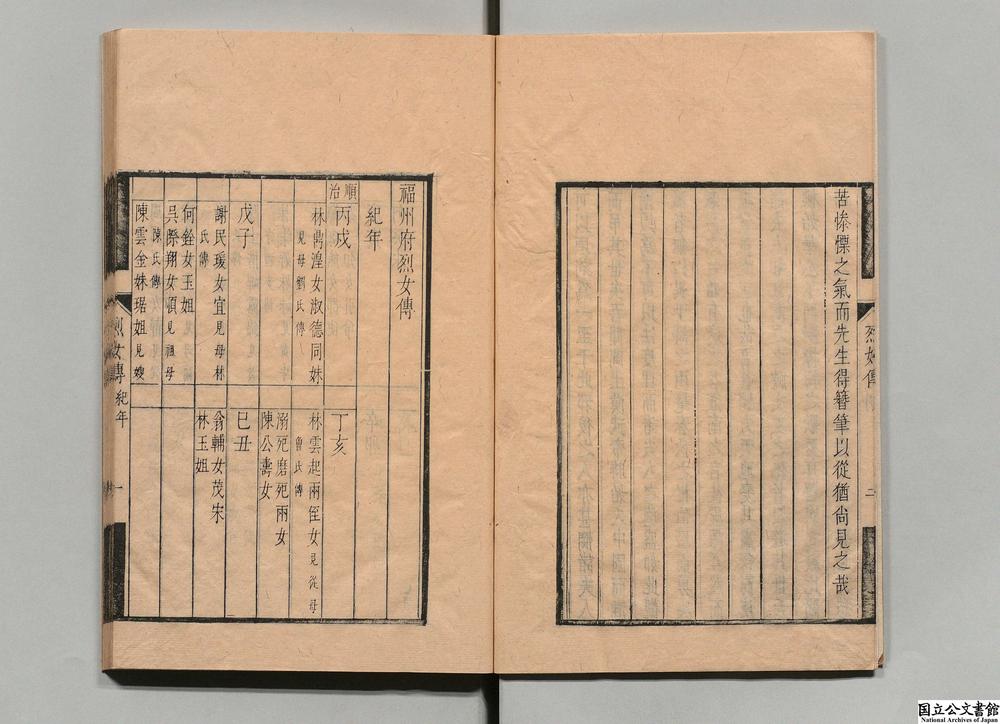 苦慘慄之氣而先生得簪筆以從猶尙見之哉
烈女傳
二
福州府烈女傳
紀年
順治
丙戌
林喬湟女淑德同妹
見母劉氏傳
戊子
謝民瑗女宜見母林
氏傳
何銓女玉姐
吳際翔女順見祖母
陳氏傳
陳雲金妹琚姐見嫂
丁亥
林雲起兩侄女見從母
曾氏傳
溺死磨死兩女
陳公壽女
巳丑
翁輔女茂宋
林玉姐
烈女傳
紀年
一
国立公文書館
National Archives of Japan